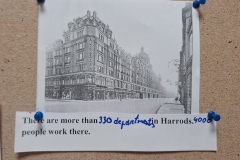 There are more than 330 departments in Harrods. 4000
people work there.